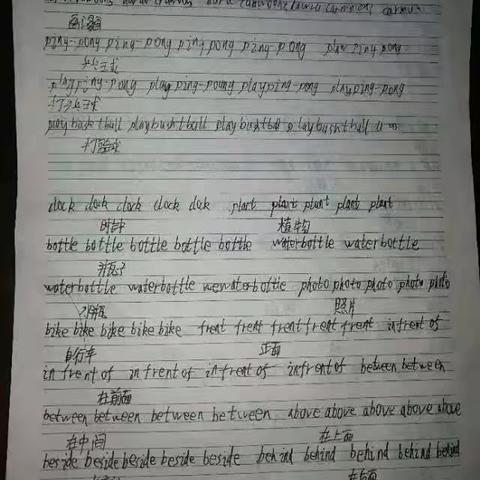 ping-pong ping-pong ping pong ping pong play ping pong
乒乓球
play ping-pong play ping-poung playping-pong playping-pong
打乒乓球
打篮球
clock clock clock clock plant plant plant plant plant
时钟 植物
bottle bottle bottle bottle bottle waterbottle waterbottle
瓶子
waterbottle waterbottle photo photo photo photo photo
水瓶 照片
bike bike bike bike bike frent frent frent frent frent infrent of
自行车 正面
in frent of in frent of in frent of infrent of between between
在前面
between between between between above above above above above
在中间 在上面
beside beside beside beside beside behind behind behind behind behind